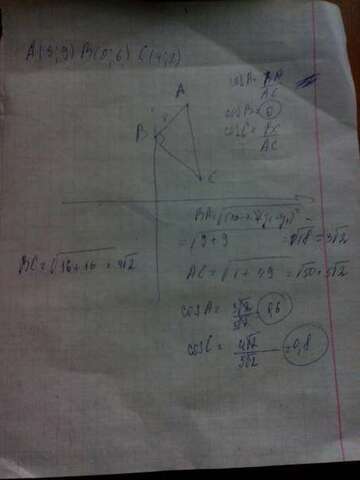 A(3;9) B(0;6) C(4;2)
cos A = BA/AC
cos B = 0
cos C = BC/AC
A
B
C
= √9+9 = √18 = 3√2
BC = √16+16 = 4√2
AC = √1+49 = √50 = 5√2
cos A = 3√2/5√2 = 0,6
cos C = 4√2/5√2 = 0,8